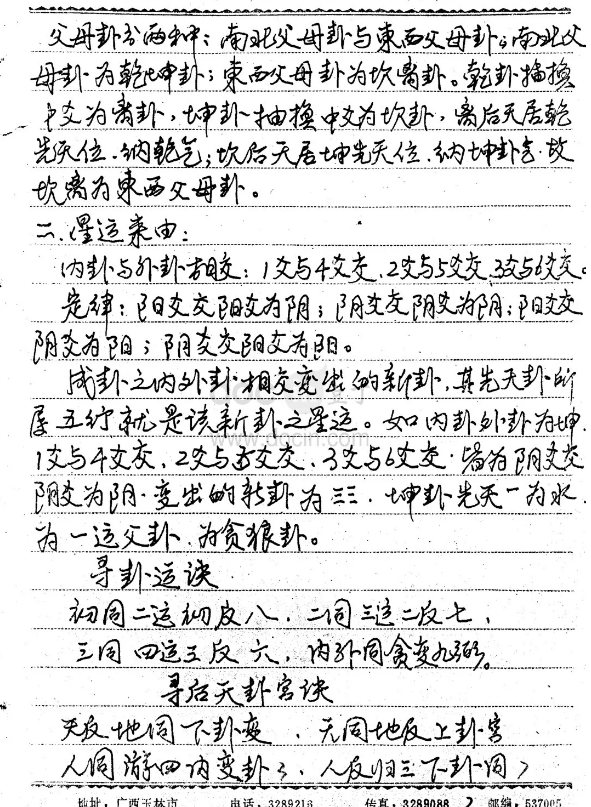 父母卦分两种：南北父母卦与東西父母卦；南北父
母卦为乾坤卦；東西父母卦为坎离卦。乾卦抽換
中爻为离卦，坤卦抽換中爻为坎卦，离后天居乾
先天位、纳乾气；坎后天居坤先天位、纳坤卦气、故
坎离为東西父母卦。
二、星运来由：
内卦与外卦相交：1爻与4爻交、2爻与5爻交、3爻与6爻交。
定律：阳爻交阳爻为阴；阴爻交阴爻为阴；阳爻交
阴爻为阳；阴爻交阳爻为阳。
成卦之内外卦相交变出的新卦，其先天卦所
属五行就是该新卦之星运。如内卦外卦为坤、
1爻与4爻交、2爻与5爻交、3爻与6爻交、皆为阴爻交
阴爻为阴、变出的新卦为☷、坤卦先天一为水、
为一运父卦、为贪狼卦。
寻卦运诀
初同二运初反八、二同三运二反七、
三同四运三反六、内外同贪变九弼。
寻后天卦宫诀
天反地同下卦变、天同地反上卦宫
人同游四内变卦、人反归三下卦同
www.docin.com
地址：广西玉林市 电话：3289216 传真：3289088 2 邮编：537005